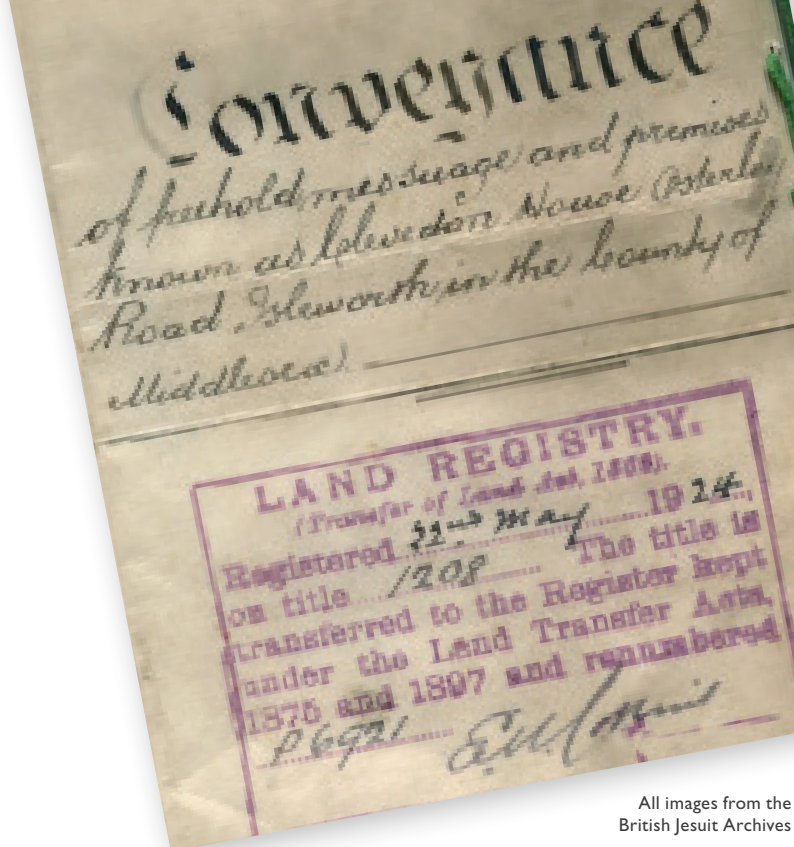 Conveyance
of freehold messuage and premises
known as Clevedon House Osterley
Road Isleworth in the County of
Middlesex
LAND REGISTRY.
(Transfer of Land Act, 1862).
Registered 22nd May 1914
on title 1208 The title is
transferred to the Register kept
under the Land Transfer Acts,
1875 and 1897 and renumbered
P6921
All images from the
British Jesuit Archives